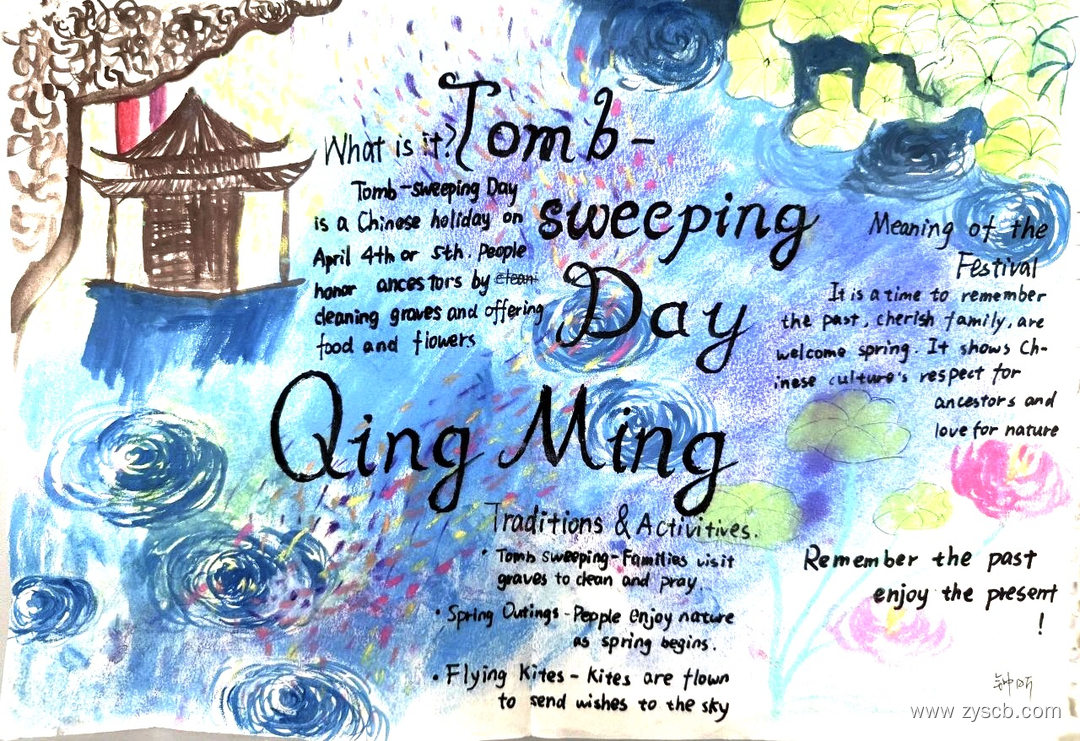 Tomb-
sweeping
Day
Qing Ming
What is it?
Tomb-sweeping Day
is a Chinese holiday on
April 4th or 5th. People
honor ancestors by
cleaning graves and offering
food and flowers
Meaning of the
Festival
It is a time to remember
the past, cherish family, are
welcome spring. It shows Ch-
inese culture's respect for
ancestors and
love for nature
Traditions & Activitives.
• Tomb sweeping-Families visit
graves to clean and pray.
• Spring Outings - People enjoy nature
as spring begins.
• Flying Kites - Kites are flown
to send wishes to the sky
Remember the past
enjoy the present
!
www.zyscb.com